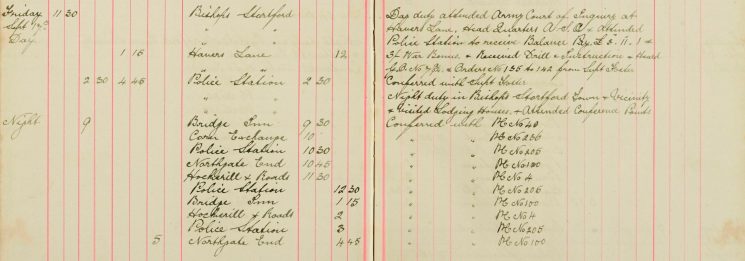 Friday 11 30 Bishops Stortford Day duty attended Army Court of Inquiry at
Sept 14th " " Havers Lane, Head Quarters A.S.C. & Attended
Day. Police Station to receive Balance Pay £3. 11. 1 &
1 15 Havers Lane 12 War Bonus. & Received Drill & Instruction & Heard
" " & Orders No 135 to 142 from Supt
2 30 4 45 Police Station 2 30 Conferred with Supt
" " Night duty in Bishops Stortford Town & Vicinity
" " & visited Lodging Houses. & Attended Conference Points
Night 9 Bridge Inn 9 30 Conferred with PC No 49
Corn Exchange 10 " " PC No 236
Police Station 10 30 " " PC No 205
Northgate End 10 45 " " PC No 100
Hockerill X Roads 11 30 " " PC No 4
Police Station 12 30 " " PC No 206
Bridge Inn 1 15 " " PC No 100
Hockerill X Roads 2 " " PC No 4
Police Station 3 " " PC No 205
5 Northgate End 4 45 " " PC No 100